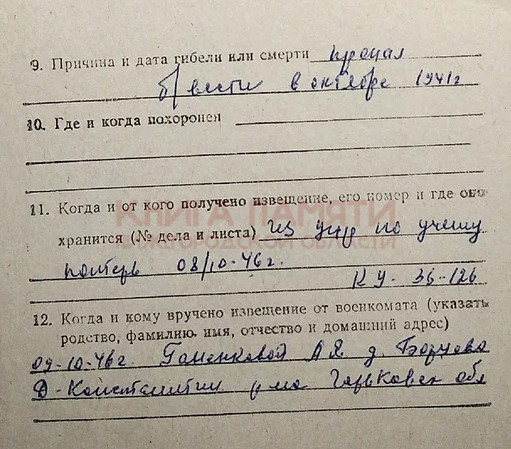 9. Причина и дата гибели или смерти пропал
б/вести в октябре 1941г
10. Где и когда похоронен
11. Когда и от кого получено извещение, его номер и где оно
КНИГА ПАМЯТИ
хранится (№ дела и листа) из упр по учету
НИЖЕГОРОДСКОЙ ОБЛАСТИ
потерь 08/10-46г.
КУ- 36-126
12. Когда и кому вручено извещение от военкомата (указать
родство, фамилию. имя, отчество и домашний адрес)
09-10-46г. А Я д.
Д-Константин р-на Горьковск обл